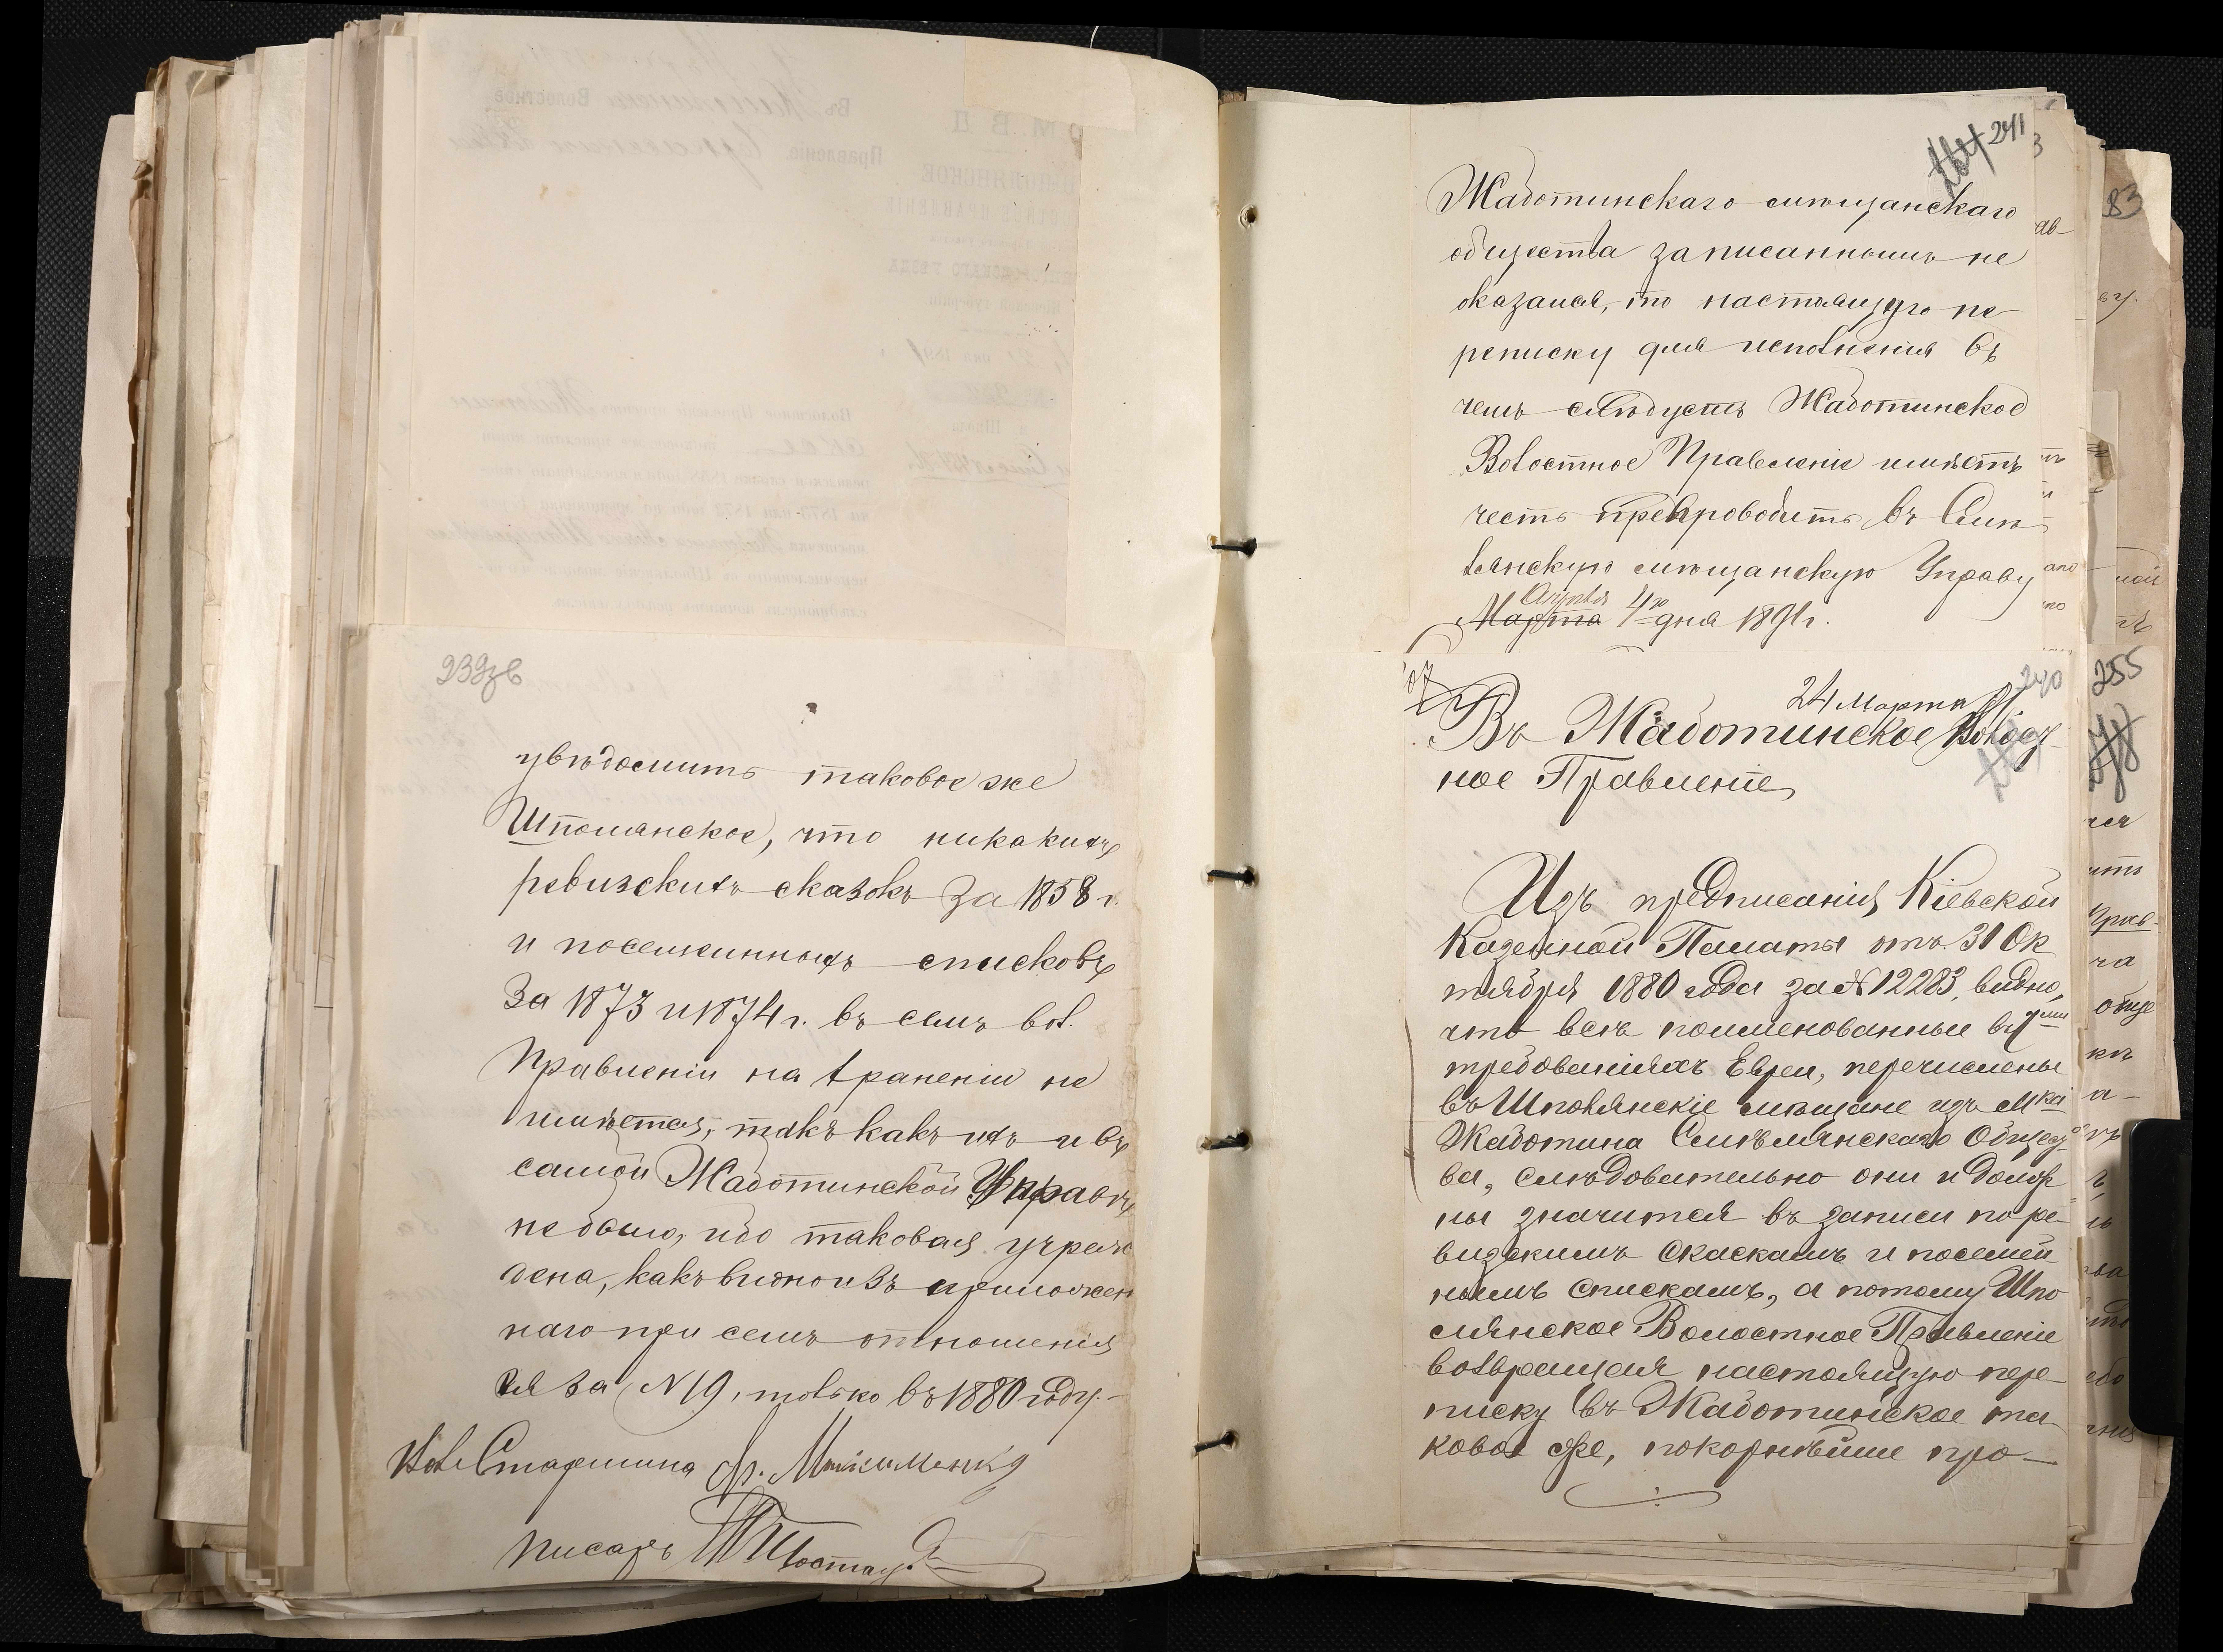 239зв
увѣдомить таковое же
Шполянское, что никакихъ
ревизскихъ сказокъ за 1858 г.
и посемейныхъ списковъ
За 1873 и 1874 г. въ семъ вол.
Правленіи на храненіи не
имѣется, такъ какъ ихъ и въ
самой Жаботинской Управѣ
не было, ибо таковая учреж
дена, какъ видно изъ приложен
наго при семъ отношенія
ея за N 19, только въ 1880 году.-
Вол. Старшина
писарь
241
Жаботинскаго мѣщанскаго
общества записаннымъ не
оказался, то настоящую пе
реписку для исполненія въ
чемъ слѣдуетъ Жаботинское
Волостное Правленіе имѣетъ
честь препроводить въ Смѣ
лянскую мѣщанскую Управу
Апрѣля
Марта 4го дня 1891 г.
240
24 Марта 91
Въ Жаботинское Волост
ное Правленіе
Изъ предписанія Кіевской
Казенной Палаты отъ 31 Ок
тября 1880 года за № 12283, видно,
что всѣ поименованные въ 7ми
требованіяхъ Евреи, перечислены
въ Шполянскіе мѣщане изъ м-ка
Жаботина Смѣлянскаго Общест
ва, слѣдовательно они и долж
ны значится въ записи по ре
визскимъ скаскамъ и посемей
нымъ спискамъ, а потому Шпо
лянское Волостное Правленіе
возвращая настоящую пере
писку въ Жаботинское та
ковое же, покорнѣйше про-
83
255